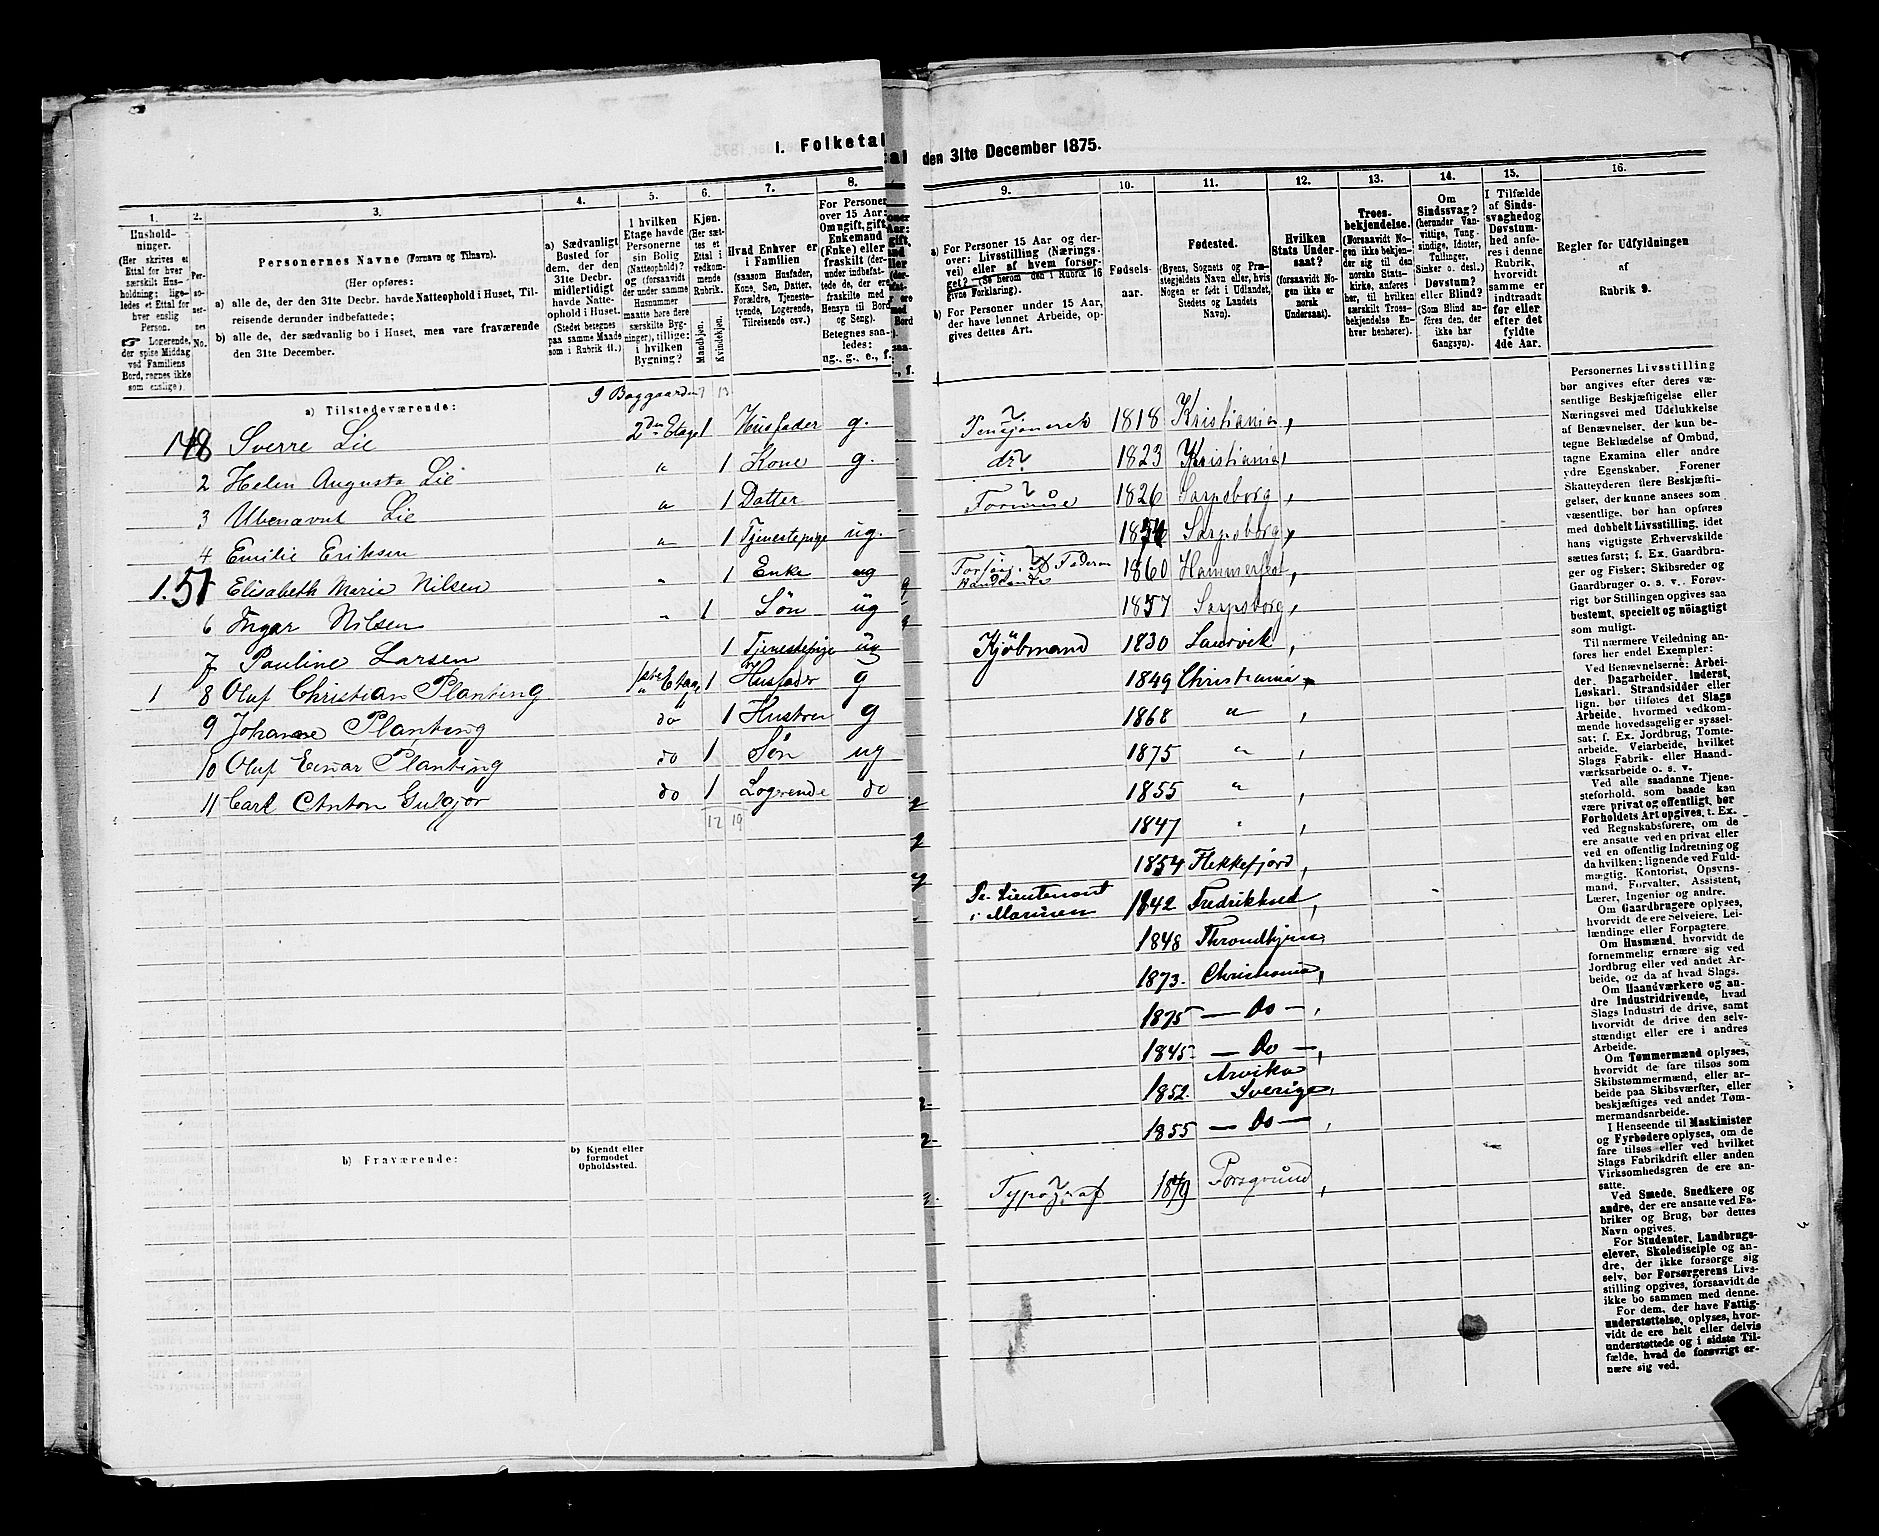 I. Folketal
tal den 31te December 1875.
1.
2.
3.
4.
5.
6.
7.
8.
9.
10.
11.
12.
13.
14.
15.
16.
Hushold-
ninger.
(Her skrives et
Ettal for hver
særskilt Hus-
holdning; lige-
ledes et Ettal for
hver enslig
Person.
☞ Logerende,
der spise Middag
ved Familiens
Bord, regnes ikke
som enslige).
Per-
so-
ner-
nes
No.
Personernes Navne (Fornavn og Tilnavn).
(Her opføres:
a) alle de, der den 31te Decbr. havde Natteophold i Huset, Til-
reisende derunder indbefattede;
b) alle de, der sædvanlig bo i Huset, men vare fraværende
den 31te December.
a) Sædvanligt
Bosted for
dem, der den
31te Decbr.
midlertidigt
havde Natte-
ophold i Huset.
(Stedet betegnes
paa samme Maade
som i Rubrik 11.)
I hvilken
Etage havde
Personerne
sin Bolig
(Natteophold)?
og (forsaavidt
der under samme
Husnummer
maatte høre flere
særskilte Byg-
ninger), tillige:
i hvilken
Bygning?
Kjøn.
(Her sæt-
tes et
Ettal i
vedkom-
mende
Rubrik.
Mandkjøn.
Kvindekjøn.
Hvad Enhver er
i Familien
(saasom Husfader,
Kone, Søn, Datter,
Forældre, Tjeneste-
tyende, Logerende,
Tilreisende osv.)
For Personer
over 15 Aar:
Om ugift, gift,
Enkemand
(Enke) eller
fraskilt (der-
under indbefat-
tede de, der ere
fraskilte med
Hensyn til Bord
og Seng).
Betegnes saa-
ledes:
ug., g., e., f.
a) For Personer 15 Aar og der-
over: Livsstilling (Nærings-
vei) eller af hvem forsør-
get? (Se herom den i Rubrik 16
givne Forklaring).
b) For Personer under 15 Aar,
der have lønnet Arbeide, op-
gives dettes Art.
Fødsels-
aar.
Fødested.
(Byens, Sognets og Præ-
stegjeldets Navn eller, hvis
Nogen er født i Udlandet,
Stedets og Landets
Navn).
Hvilken
Stats Under-
saat?
(forsaavidt No-
gen ikke er
norsk
Undersaat).
Troes-
bekjendelse.
(Forsaavidt No-
gen ikke bekjen-
der sig til den
norske Stats-
kirke, anføres
her, til hvilken
særskilt Troes-
bekjendelse En-
hver henhører).
Om
Sindssvag?
(herunder Van-
vittige, Tung-
sindige, Idioter,
Tullinger,
Sinker o. desl.)
Døvstum?
eller Blind?
(Som Blind an-
føres den, der
ikke har
Gangsyn).
I Tilfælde
af Sinds-
svaghed og
Døvstum-
hed anfø-
res i denne
Rubrik,
hvorvidt
samme er
indtraadt
før eller
efter det
fyldte
4de Aar.
Regler for Udfyldningen
af
Rubrik 9.
a) Tilstedeværende:
9 Baggaarden 7 13
148 Sverre Lie 2den Etage 1 Husfader g. Pensjoneret 1818 Kristiania,
2 Helen Augusta Lie " 1 Kone g. do 1823 Kristiania,
3 Ubenævnt Lie " 1 Datter Formue 1826 Sarpsborg,
4 Emilie Eriksen " 1 Tjenestepige ug. 1856 Sarpsborg,
1. 5 Elisabeth Marie Nilsen " 1 Enke ug Forsørg. af Faderen Handlende 1860 Hammerfest,
6 Ingar Nilsen " 1 Søn ug 1857 Sarpsborg,
7 Pauline Larsen 1 Tjenestepige ug Kjöbmand 1830 Laurvik,
1 8 Oluf Christian Planting 1ste Etage 1 Husfader g 1849 Christiania,
9 Johanne Planting do 1 Hustru g 1868 " ,
10 Oluf Einar Planting do 1 Søn ug 1875 " ,
11 Carl Anton Gulgjor do 1 Logerende do 1855 " ,
12 19 1847 " ,
1854 Flekkefjord,
Pr. Lieutenant
i Marinen 1842 Fredrikstad,
1848 Throndhjem,
1873. Christiania,
1875 — Do — ,
1845 — Do — ,
1852. Arvika
Sverige,
1855 — Do — ,
b) Fraværende:
b) Kjendt eller
formodet
Opholdssted.
Typograf 1849 Porsgrund,
Personernes Livsstilling
bør angives efter deres væ-
sentlige Beskjæftigelse eller
Næringsvei med Udelukkelse
af Benævnelser, der kun be-
tegne Beklædelse af Ombud,
tagne Examina eller andre
ydre Egenskaber. Forener
Skatteyderen flere Beskjæfti-
gelser, der kunne ansees som
væsentlige, bør han opføres
med dobbelt Livsstilling, idet
hans vigtigste Erhvervskilde
sættes først; f. Ex. Gaardbru-
ger og Fisker; Skibsreder og
Gaardbruger o. s. v. Forøv-
rigt bør Stillingen opgives saa
bestemt, specielt og nøiagtigt
som muligt.
Til nærmere Veiledning an-
føres her endel Exempler:
Ved Benævnelserne: Arbei-
der, Dagarbeider, Inderst,
Løskarl, Strandsidder eller
lign. bør tilføies det Slags
Arbeide, hvormed vedkom-
mende hovedsagelig er syssel-
sat; f. Ex. Jordbrug, Tomte-
arbeide, Veiarbeide, hvilket
Slags Fabrik- eller Haand-
værksarbeide o. s. v.
Ved alle saadanne Tjene-
steforhold, som baade kan
være privat og offentligt, bør
Forholdets Art opgives, t. Ex.
ved Regnskabsførere, om de
ere ansatte ved en privat eller
ved en offentlig Indretning og
da hvilken; lignende ved Fuld-
mægtig, Kontorist, Opsyns-
mand, Forvalter, Assistent,
Lærer, Ingeniør og andre.
Om Gaardbrugere oplyses,
hvorvidt de ere Selveiere, Lei-
lændinge eller Forpagtere.
Om Husmænd, hvorvidt de
fornemmelig ernære sig ved
Jordbrug eller ved andet Ar-
beide, og da af hvad Slags.
Om Haandværkere og an-
dre Industridrivende, hvad
Slags Industri de drive, samt
hvorvidt de drive den selv-
stændigt eller ere i andres
Arbeide.
Om Tømmermænd oplyses,
hvorvidt de fare tilsøs som
Skibstømmermænd, eller ar-
beide paa Skibsværfter, eller
beskjæftiges ved andet Tøm-
mermandsarbeide.
I Henseende til Maskinister
og Fyrbødere oplyses, om de
fare tilsøs eller ved hvilket
Slags Fabrikdrift eller anden
Virksomhedsgren de ere an-
satte.
Ved Smede, Snedkere og
andre, der ere ansatte ved Fa-
briker og Brug, bør dettes
Navn opgives.
For Studenter, Landbrugs-
elever, Skoledisciple og an-
dre, der ikke forsørge sig
selv, bør Forsørgerens Livs-
stilling opgives, forsaavidt de
ikke bo sammen med denne.
For dem, der have Fattig-
understøttelse, oplyses, hvor-
vidt de ere helt eller delvis
understøttede og i sidste Til-
fælde, hvad de forøvrigt er-
nære sig ved.